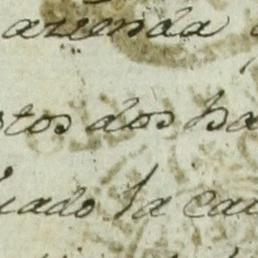 azienda
tos dos ha
uado ha cau